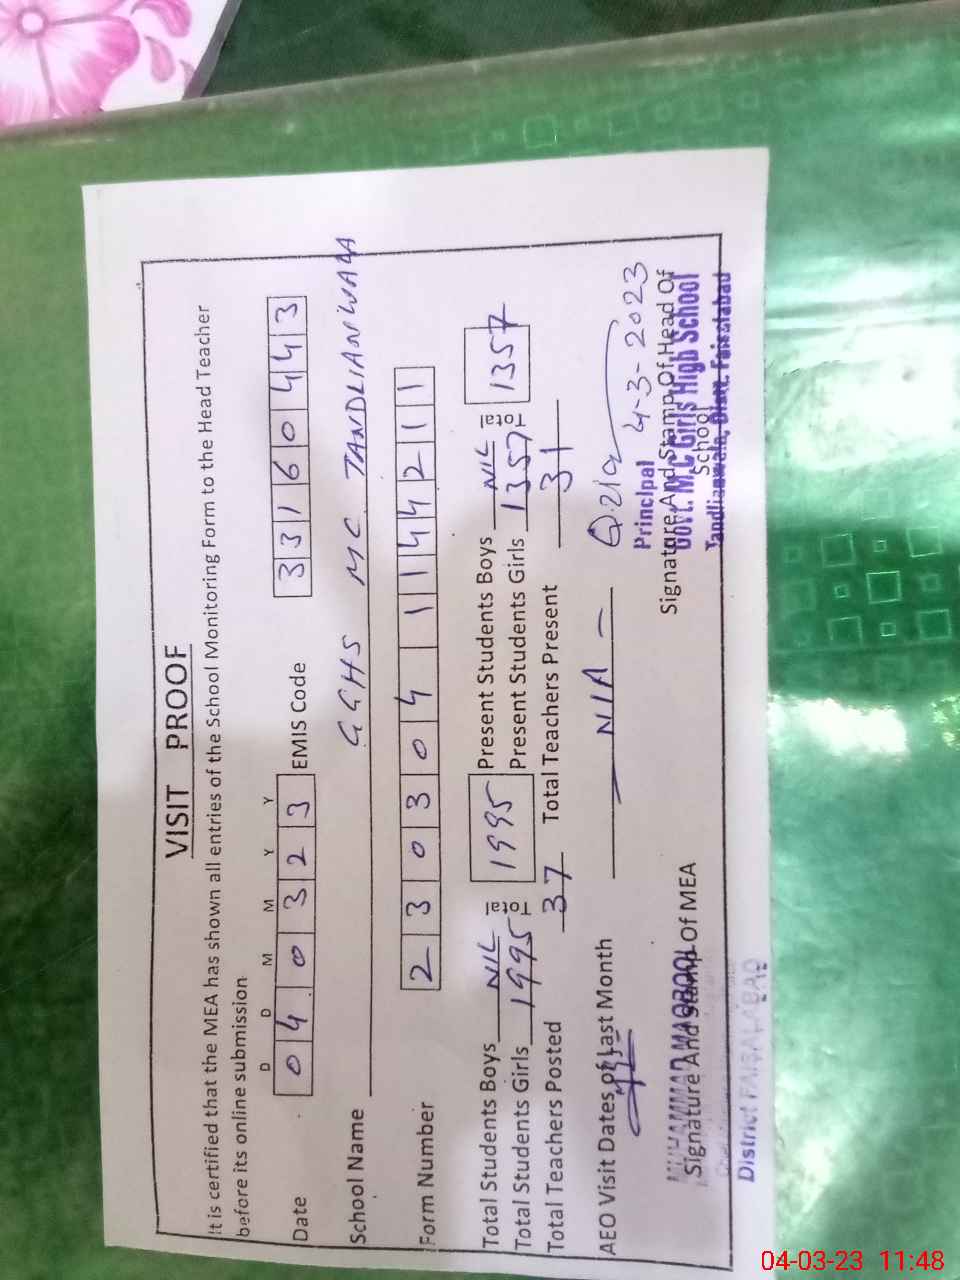 VISIT PROOF
It is certified that the MEA has shown all entries of the School Monitoring Form to the Head Teacher
before its online submission
D D M M Y Y
Date 0 4 0 3 2 3 EMIS Code 3 3 1 6 0 4 4 3
School Name GGHS MC TANDLIANWALA
Form Number 2 3 0 3 0 4 1 1 4 4 2 1 1
Total Students Boys NIL Total 1995 Present Students Boys NIL Total 1357
Total Students Girls 1995 Present Students Girls 1357
Total Teachers Posted 37 Total Teachers Present 31
AEO Visit Dates of Last Month N/A
4-3-2023
Principal
Signature And Stamp Of Head Of
School
Govt. M.C Girls High School
Tandlianwala, Distt. Faisalabad
MUHAMMAD MAQBOOL
Signature And Stamp Of MEA
District FAISALABAD
04-03-23 11:48